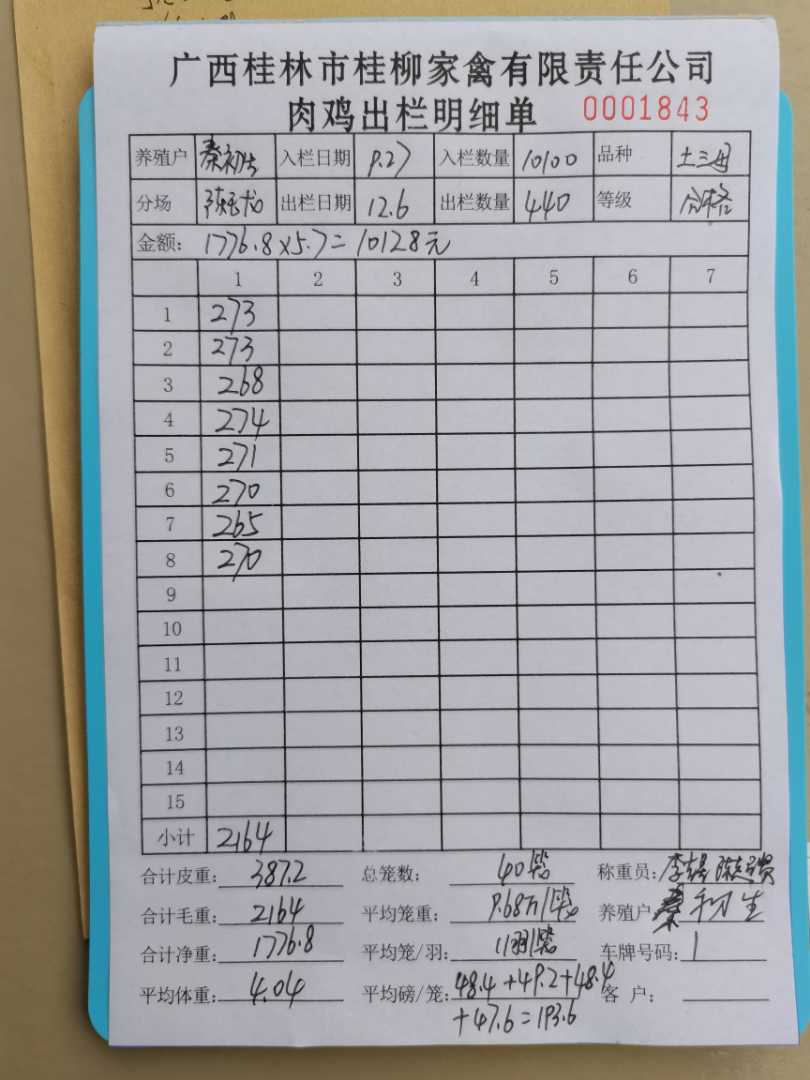 广西桂林市桂柳家禽有限责任公司
肉鸡出栏明细单 0001843
养殖户 秦初生 入栏日期 9.27 入栏数量 10100 品种 土三母
分场 出栏日期 12.6 出栏数量 440 等级 合格
金额: 1776.8×5.7=10128元
1 2 3 4 5 6 7
1 273
2 273
3 268
4 274
5 271
6 270
7 265
8 270
9
10
11
12
13
14
15
小计 2164
合计皮重: 387.2 总笼数: 40笼 称重员:
合计毛重: 2164 平均笼重: 9.68斤/笼 养殖户 秦初生
合计净重: 1776.8 平均笼/羽: 11羽/笼 车牌号码: 1
平均体重: 4.04 平均磅/笼: 48.4+49.2+48.4 客 户:
+47.6=193.6